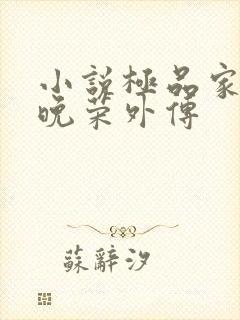 小說極品家
晚榮外傳
蘇辭汐